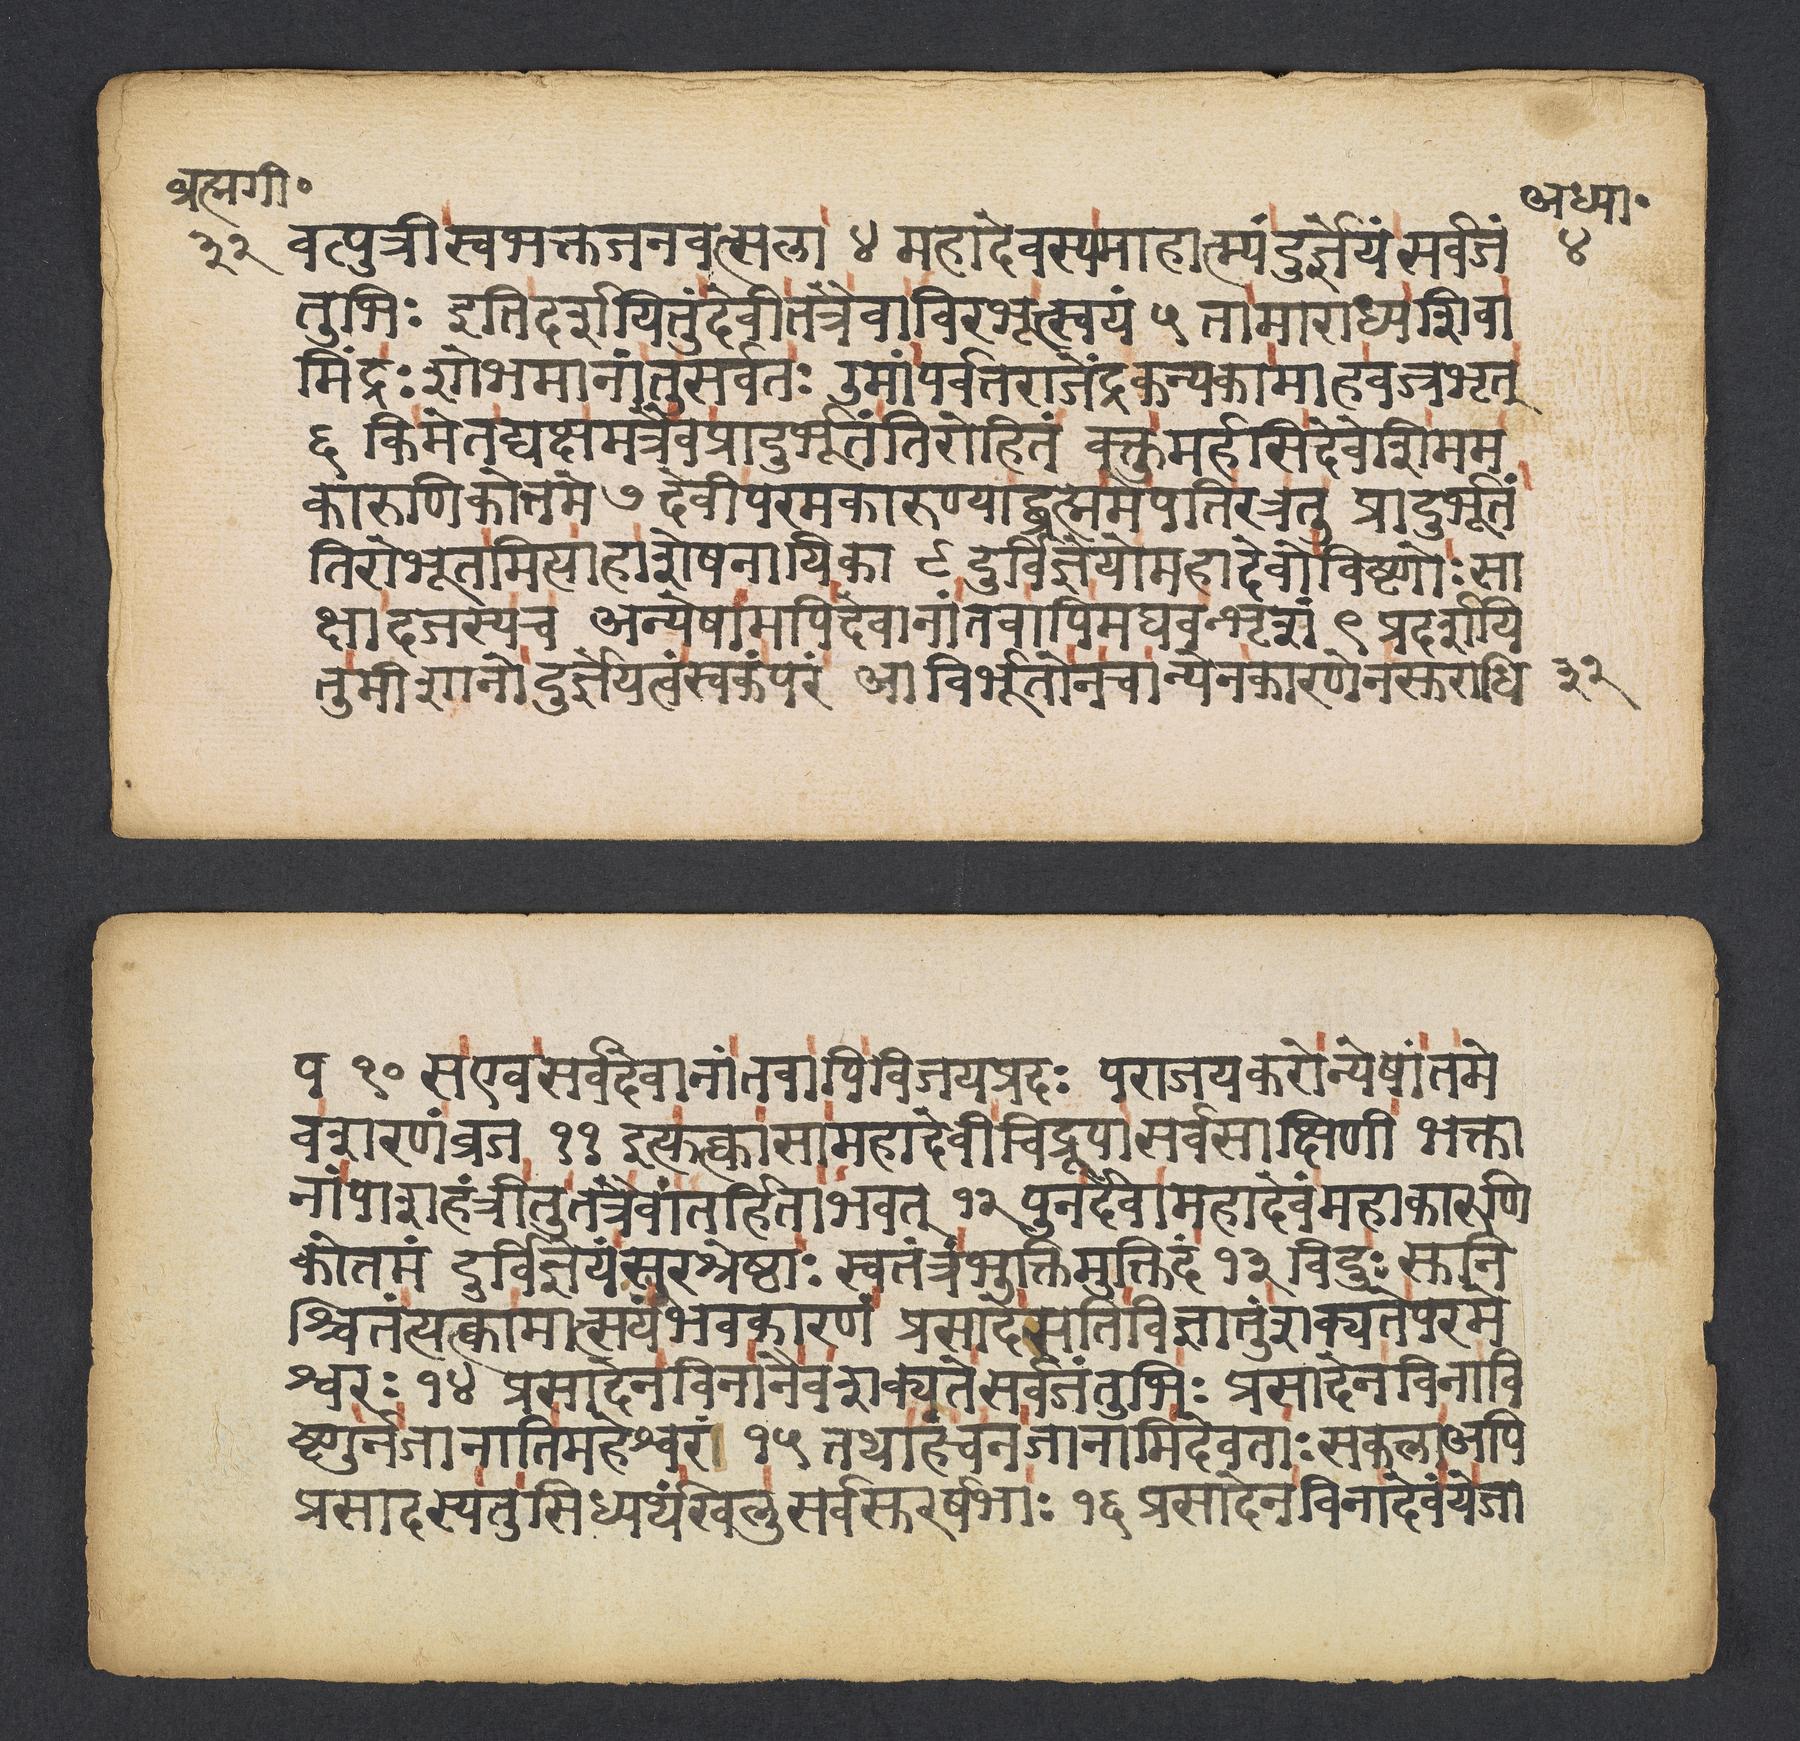 ब्रह्मगी॰
अध्या॰
३२
४
वत्पुत्री स्वभक्तजनवत्सला ४ महादेवस्यमाहात्म्यं दुर्ज्ञेयं सर्वजं
तुभिः इतिदर्शयितुंदेवीतत्रैवाविरभूत्स्वयं ५ तामाराध्यशिवा
मिंद्रः शोभमानांतुसर्वतः उमांपर्वतराजेंद्रकन्यकामाहवज्रभृत्
६ किमेतद्यक्षमत्रैवप्रादुर्भूतंतिरोहितं वक्तुमर्हसिदेवेशिमम
कारुणिकोत्तमे ७ देवीपरमकारुण्याद्ब्रह्ममेपतिरत्रतु प्रादुर्भूतं
तिरोभूतमित्याहाशेषनायिका ८ दुर्विज्ञेयोमहादेवोविष्णोः सा
क्षादजस्यच अन्येषामपिदेवानांतवापिमघवन्भृशं ९ प्रदर्शयि
तुमीशानो दुर्ज्ञेयत्वंस्वकंपरं आविर्भूतोनचान्येनकारणेनसुराधि
३२
प १० सएवसर्वदेवानांतवापिविजयप्रदः पराजयकरोन्येषांतमे
वशरणंव्रज ११ इत्युत्क्वासामहादेवीचिद्रूपासर्वसाक्षिणी भक्ता
नांपाशहंत्रीतुतत्रैवांतर्हिताभवत् १२ पुनर्देवामहादेवंमहाकारुणि
कोत्तमं दुर्विज्ञेयंसुरश्रेष्ठाः स्वतंत्रंभुक्तिमुक्तिदं १३ विदुः सुनि
श्चितंत्यत्क्वामात्सर्यंभवकारणं प्रसादेसतिविज्ञातुंशक्यतेपरमे
श्वरः १४ प्रसादेनविनानैवशक्यतेसर्वजंतुभिः प्रसादेनविनावि
ष्णुर्नजानातिमहेश्वरं १५ तथाहंचनजानामिदेवताः सकलाअपि
प्रसादस्यतुसिध्यर्थंखलुसर्वसुरर्षभाः १६ प्रसादेनविनादेवंयेजा